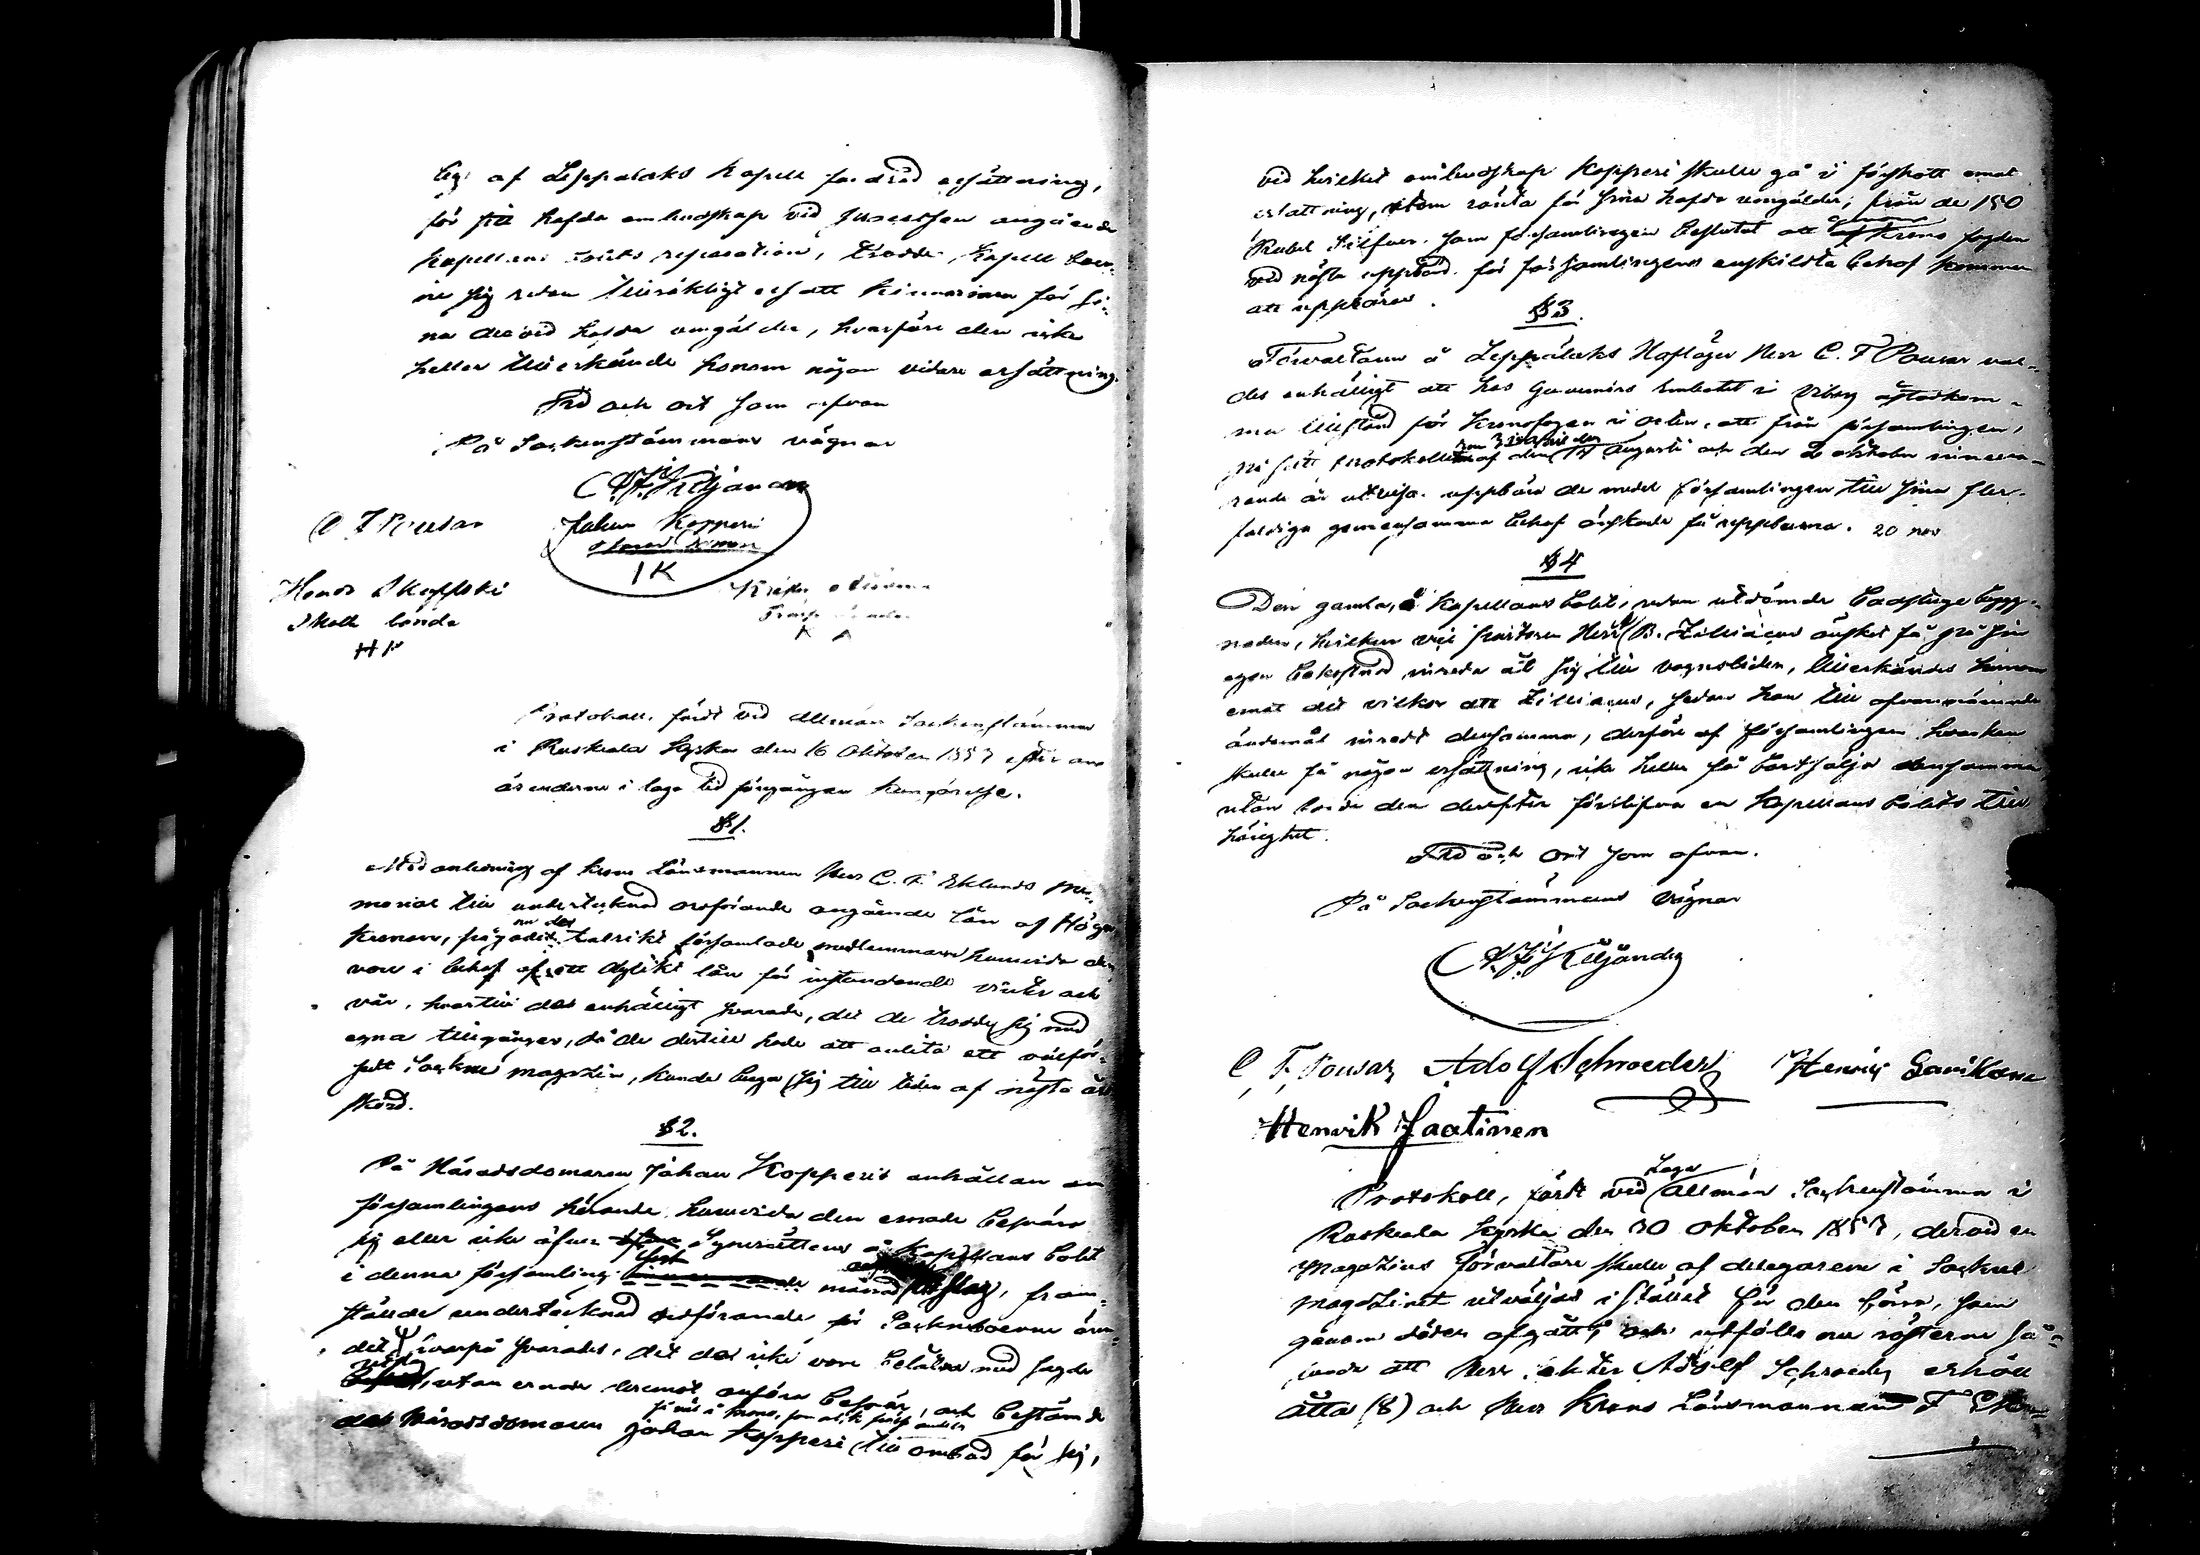 af Leppälaks Kapell fordrad ersättning,
för sitt hafda ombudskap vid processen angående
kapellans bolets reparation, trodde Kapell boer-
ne sig redan tillräckligt ersatt Kinnarinen för si-
na dervid hafda omgälder, hvarföre den icke
heller tillerkände honom någon vidare ersättning.
Tid och ort som ofvan
På Sockenstämmans vägnar
Johan Kopperi
I K
C F Pousar
Henrik
H P
K
Protokoll, fördt vid allmän Sockenstämma
i Ruskeala kyrka den 16 Oktober 1853 efter om
ärenderne i laga tid föregången kungörelse.
§ 1.
Med anledning af Krono Länsmannen Herr C. F. Eklunds me-
morial till undertecknad ordförande angående lån af Höga
Kronan, frågades nu det talrikt församlade medlemmarne huruvida de
vore i behof af ett dylikt lån för instundande vinter och
vår, hvartill det enhälligt svarade, det de trodde sig med
egna tillgångar, då de dertill hade att anlita ett välför-
sedt Sockne magazin, kunde berga sig till tiden af nästa års
skörd.
§ 2.
På Häradsdomaren Johan Kopperis anhållan om
församlingens hörande, huruvida den ernade besvära
sig eller icke öfver Synerättens å Kapellans bolet
i denna församling sist månad utslag, fram-
stälde undertecknad ordförande för Socknboerne ären-
det, hvarpå svarades, det det icke vore belåten med sagde
utslag, utan ernade deremot anföra besvär, och bestämde
det Häradsdomaren Johan Kopperi till ombud för sig,
vid hvilket ombudskap Kopperi skulle gå i förskott emot
ersättning, utom ränta för sina hafda omgälder, från de 150
Rubel Silfver, som församlingen beslutat att genom Krono fogden
vid nästa uppbörd för församlingens enskildta behof komma
att uppbäras.
§ 3.
Förvaltaren å Leppälaks Hoflägen Herr C. F Pousar val-
des enhälligt att hos Guvernörs Embetet i Viborg åstadkom-
ma tillstånd för Kronofogden i orten, att från församlingen,
på sätt protokollerne af den 31 augusti och den 2 oktober innewa-
rande år utvisa, uppbära de medel församlingen till sina fler-
faldiga gemensamma behof önskade få uppburna. 20 nov
§ 4
Den gamla, å Kapellans bolet, redan utdömda badstuge bygg-
naden, hvilken vice pastoren Herr B. Zilliacus önskat få på sin
egen bekostnad inreda åt sig till vagnsliden, tillerkändes honom
emot det vilkor att Zilliacus, sedan han till ofvannämnde
ändamål inredt densamma, derföre af församlingen hvarken
skulle få någon ersättning, icke heller få bortsälja densamma
utan borde den derefter förblifva en Kapellans bolets till
hörighet.
Tid och ort som ofvan.
På Sockenstämmans vägnar
C. F. Pousar Adolf Schroeder Henrik Savikko
Henrik Saatinen
Protokoll, fördt vid Laga Allmän Sockenstämma i
Ruskeala kyrka den 30 oktober 1853, dervid en
Magazins Förvaltare skulle af delegarene i Sockne
magazinet utväljas i stället för den förra, som
genom döden afgått, och utföllo nu rösterne så-
lunda att Herr Adolf Schroeder erhöll
åtta (8) och Herr Krono Länsmannen F